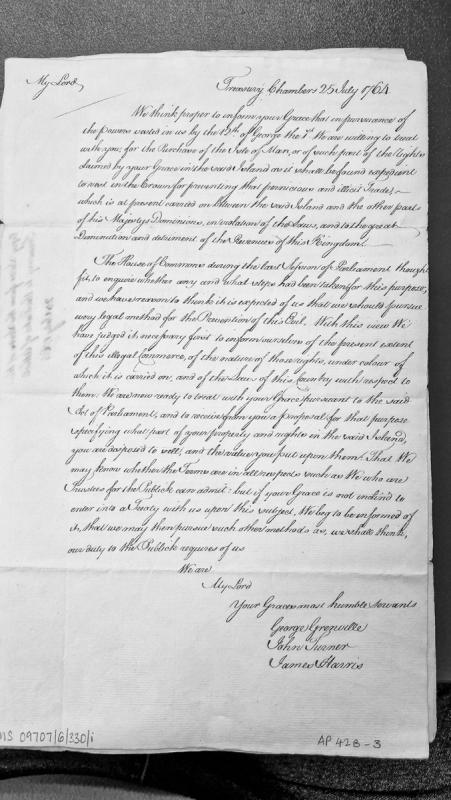 My Lord
Treasury Chambers 25 July 1764
We think proper to inform your Grace that in pursuance of
the Powers vested in us by the 12th of George the 1st We are willing to treat
with you, for the Purchase of the Isle of Man, or of such part of the Rights
claimed by your Grace in the said Island as it shall be found expedient
to vest in the Crown for preventing that pernicious and illicit Trade,
which is at present carried on between the said Island and the other parts
of his Majestys Dominions, in violation of the Laws, and to the great
Diminution and detriment of the Revenues of this Kingdom.
The House of Commons during the last Session of Parliament thought
fit, to enquire whether any and what steps had been taken for this purpose,
and we have reason to think it is expected of us that we should pursue
every legal method for the Prevention of this Evil. With this view We
have judged it necessary first to inform ourselves of the present extent
of this illegal Commerce, of the nature of those rights, under colour of
which it is carried on, and of the Laws of this Country with respect to
them. We are now ready to treat with your Grace pursuant to the said
Act of Parliament, and to receive from you a proposal for that purpose
specifying what part of your property and rights in the said Island,
you are disposed to sell, and the value you put upon them. That We
may know whether the Terms are in all respects such as We who are
Trustees for the Publick can admit: but if your Grace is not inclind to
enter into a Treaty with us upon this subject, We beg to be informed of
it, that we may then pursue such other methods as, we shall think,
our duty to the Publick requires of us
We are
My Lord
Your Graces most humble Servants
George Grenville
John Turner
James Harris
MS 09707/6/330/i
AP 42B-3